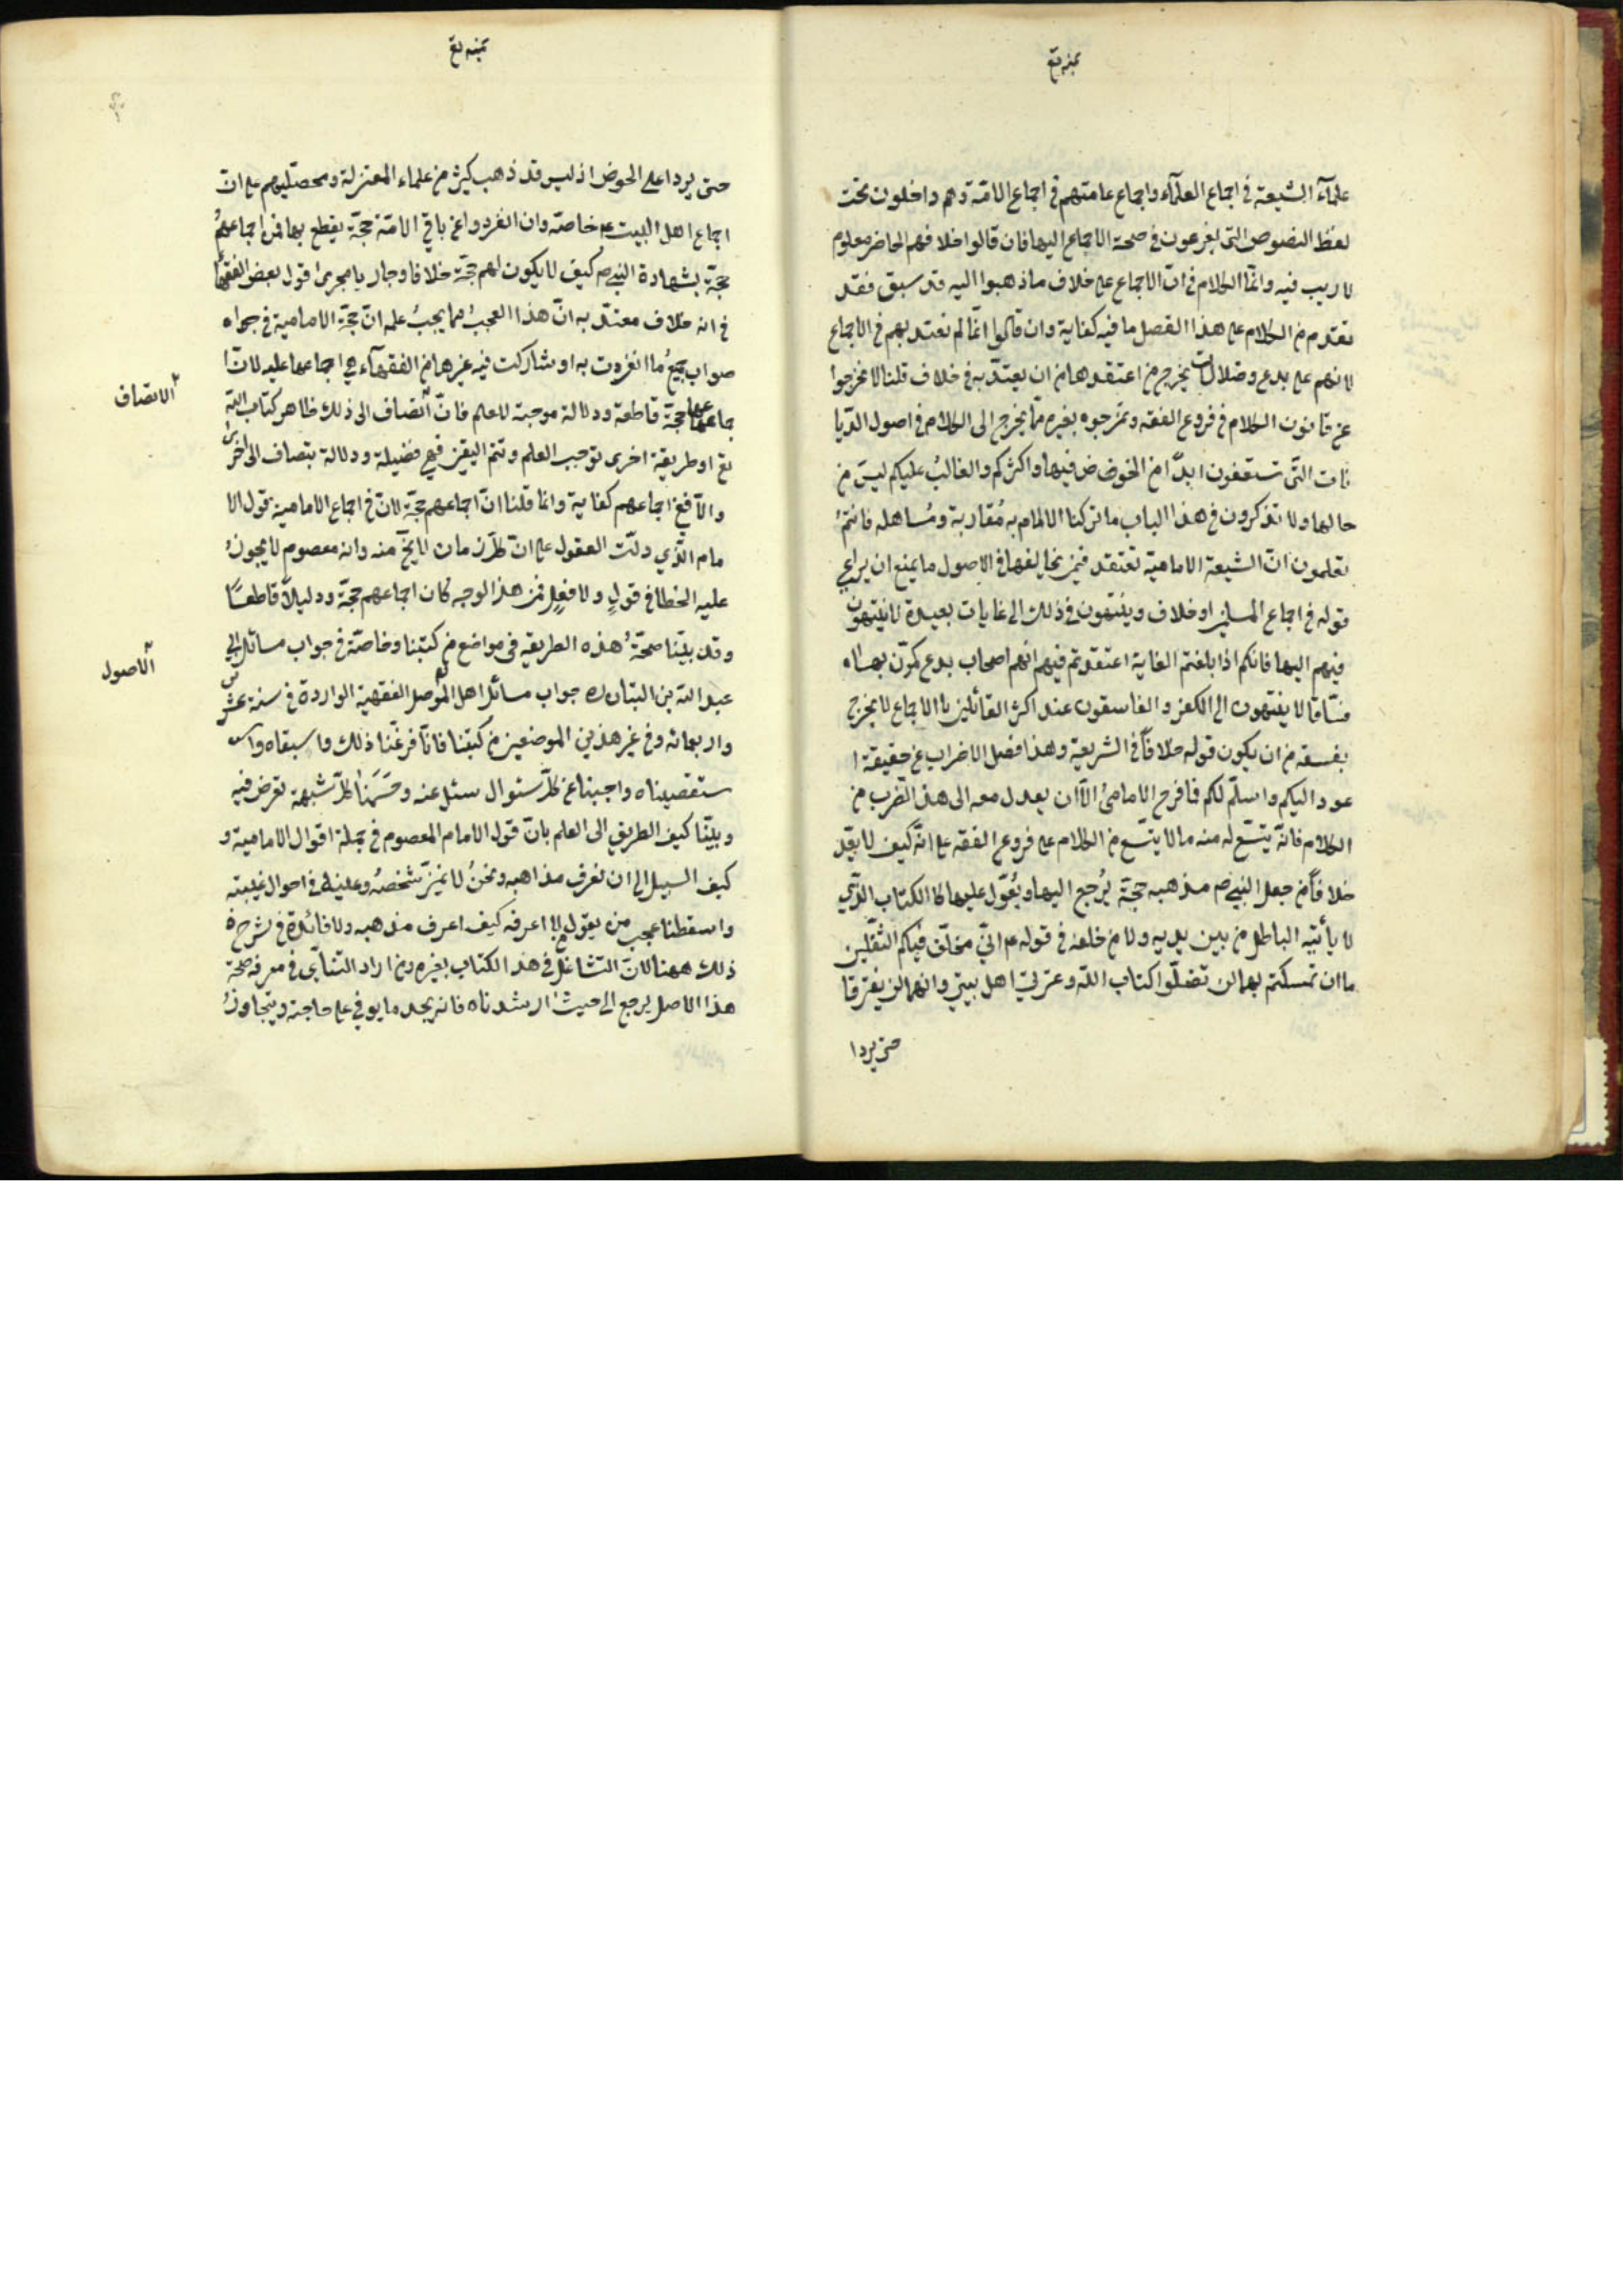 علمآء الشيعة في اجماع العلمآء واجماع عامتهم في اجماع الامّة وهم داخلون تحت
لفظ النصوص التى يفزعون في صحة الاجماع اليها فان قالوا خلافهم الحاضر معلوم
لا ريب فيه وانمّا الكلام في انّ الاجماع على خلاف ما ذهبوا اليه قد سبق فقد
تقدم من الكلام على هذا الفصل ما فيه كفاية وان قالوا انّما لم نعتد بهم في الاجماع
لانهم على بدع وضلالات يخرج من اعتقدها من ان يعتدّ به في خلاف قلنا لا تخرجوا
عن قانون الكلام في فروع الفقه وتمزجوه بغيره ممّا يخرج الى الكلام في اصول الدّيا
نات التّى تستعفون ابدًا من الخوض فيها واكثركم والغالبُ عليكم ليسَ من
حالها ولا تذكرون في هذا الباب ما تركنا الالمام به مُقاربة ومُساهله فانتمُ
تعلمون انّ الشيعة الامامية تعتقد فيمن يخالفها في الاصول ما يمنع ان يراعي
قوله في اجماع المسلمين او خلاف وينتهون في ذلك الى غايات بعيدة لا تنتهون
فيهم اليها فانكم اذا بلغتم الغاية اعتقدتم فيهم انهم اصحاب بدع كرّن بها
فسّاقا لا ينتهون الى الكفر والفاسقون عند اكثر القائلين بالاجماع لا يخرج
بفسقه من ان يكون قوله خلافًا في الشريعة وهذا فصل الاضراب عن حقيقة ا
عود اليكم واسلّم لكم فافرح الامامىُ الّا ان يعدل معه الى هذا الضّرب من
الكلام فانّه يتسّع له منه ما لا يتسّع من الكلام على فروع الفقه على انّه كيف لا يعّد
خلافًا من جعل النبي ص مذهبه حجةً يُرجع اليها ويُعوّل عليها كالكتاب الذّي
لا يأتيه الباطل من بين يديه ولا من خلفه في قوله ع انّي مخلّف فيكم الثّقلين
ما ان تمسكتم بهما لن تضلّوا كتاب اللّه وعترتي اهل بيتي وانهما لن يفترقا
حتى يردا
حتى يردا على الحوض اذ ليس قد ذهب كثير من علماء المعتزلة ومحصّليهم على انّ
اجماع اهل البيت ع خاصّه وان انفردوا عن باقي الامّة حجّة يقطع بها فمن اجماعهُم
حجّة بشهادة النبي ص كيف لا يكون لهم حجّة خلافا وجاريا مجرى قول بعض الفقها
في انه خلاف معتدّ به انّ هذا العجبُ مما يجبُ علمه انّ حجّة الامامية في جواه
صواب جميعُ ما انفردت به او شاركت فيه غيرها من الفقهآء هي اجماعها عليه لانّ ا
جماعها حجّة قاطعة ودلالة موجبة للعلم فانّ انضاف الى ذلك ظاهر كتاب اللّه
تع او طريقة اخرى توجب العلم وتتم اليقين فهي فضيلة ودلالة تنضاف الى اخرىٰ
والّا ففي اجماعهم كفاية وانما قلنا انّ اجماعهم حجّة لانّ في اجماع الامامية قول الا
مام الذّي دلّت العقول على انّ كلّ زمان لا يخّ منه وانه معصوم لا يجوزُ
عليه الخطا في قولٍ ولا فعلٍ فمن هذا الوجه كان اجماعهم حجّة ودليلًا قاطعًا
وقد بيّنا صحّةُ هذه الطريقه في مواضع من كتبنا وخاصّة في جواب مسائل ابي
عبد اللّه بن التبّان ره جواب مسائل اهل الموصل الفقهية الواردة في سنة عشرين
واربعمائه وفي غير هذين الموضعين من كتبنا فانّا فرغّنا ذلك واسبقاه واس
ستقصيناه واجبنا عن كلّ سئوال سئل عنه وحَسَمنا كلّ شبهة تعرض فيه
وبيّنّا كيف الطريق الى العلم بانّ قول الامام المعصوم في جملة اقوال الامامية و
كيف السبيل الى ان نعرف مذاهبه ونحنُ لا نميّز شخصهُ وعينه في احوال غيبته
واسقطنا عجب من يقول لا اعرفه كيف اعرف مذهبه ولا فائدة في شرح
ذلك ههنا لانّ التّشاغلّ في هذا الكتاب بغيره ومن اراد التنآئى في معرفة صحّة
هذا الاصل يرجع الى حيثُ ارشدناه فانه يجد ما يوفي على حاجته ويتجاوزُ
الانضاف
الاصول